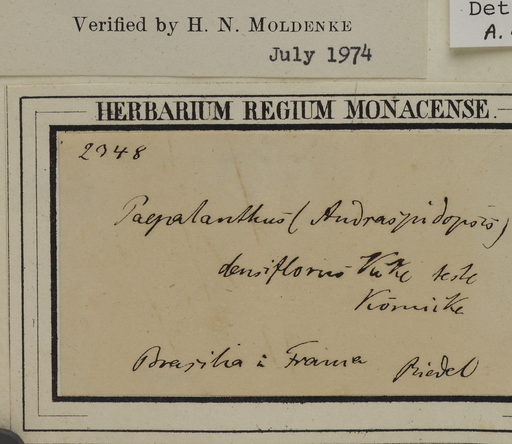 Verified by H. N. MOLDENKE
July 1974
Det
A.
HERBARIUM REGIUM MONACENSE.
2348
Paepalanthus (Andraspidopsis)
densiflorus Kcke teste
Körnicke
Brasilia Riedel